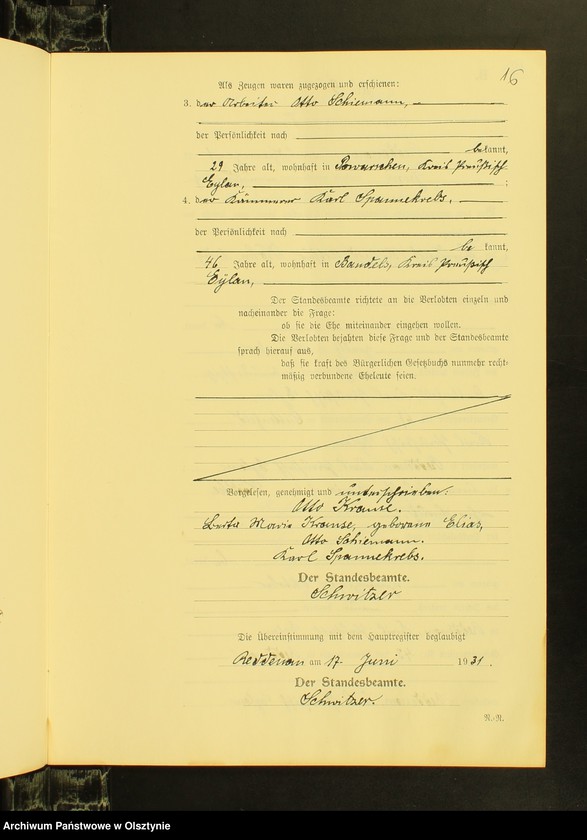 16
Als Zeugen waren zugezogen und erschienen:
3. der Arbeiter Otto Schiemann,
der Persönlichkeit nach
bekannt,
29 Jahre alt, wohnhaft in Powarschen, Kreis Preußisch
Eylau, ;
4. der Kämmerer Karl Spannekrebs,
der Persönlichkeit nach
be kannt,
46 Jahre alt, wohnhaft in Bandels, Kreis Preußisch
Eylau,
Der Standesbeamte richtete an die Verlobten einzeln und
nacheinander die Frage:
ob sie die Ehe miteinander eingehen wollen.
Die Verlobten bejahten diese Frage und der Standesbeamte
sprach hierauf aus,
daß sie kraft des Bürgerlichen Gesetzbuchs nunmehr recht-
mäßig verbundene Eheleute seien.
Vorgelesen, genehmigt und unterschrieben:
Otto Krause.
Berta Marie Krause, geborene Elias,
Otto Schiemann.
Karl Spannekrebs.
Der Standesbeamte.
Schwitzer
Die Übereinstimmung mit dem Hauptregister beglaubigt
Reddenau am 17. Juni 1931.
Der Standesbeamte.
Schwitzer.
N.-R.
Archiwum Państwowe w Olsztynie